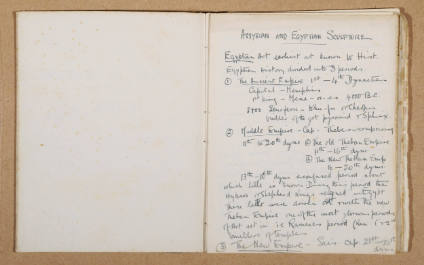 ASSYRIAN AND EGYPTIAN SCULPTURE
Egyptian Art earliest art known to Hist.
Egyptian history divided into 3 periods
① The Ancient Empire 1st – 4th Dynasties
Capital – Memphis
1st King – Mene 4000 B.C.
3700 or Cheops
builder of the gt pyramid & Sphinx
② Middle Empire – Cap – Thebes – comprising
11th to 20th dyns ⓐ The old Theban Empire
11th – 16th dyns
ⓑ The New Theban Emp
– 20th dyns.
13th – confused period about
which little is known. During this period the
Hyksos or Shepherd Kings reigned in Egypt
These latter were driven out & with the new
Theban Empire one of the most glorious periods
of Art set in i.e. Rameses period (Ram 1 & 2
builders of temples
③ The New Empire – Sais Cap.
dyns